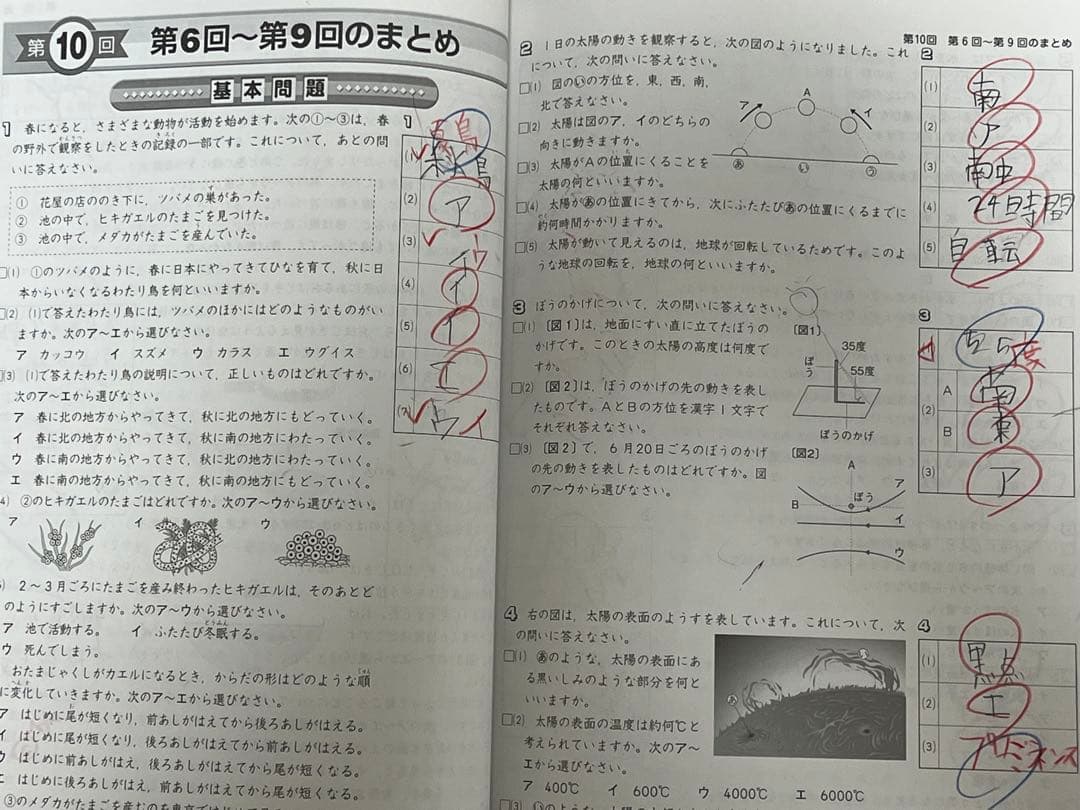 第10回 第6回～第9回のまとめ
基本問題
1 春になると，さまざまな動物が活動を始めます。次の①～③は，春
の野外で観察をしたときの記録の一部です。これについて，あとの問
いに答えなさい。
① 花屋の店ののき下に，ツバメの巣があった。
② 池の中で，ヒキガエルのたまごを見つけた。
③ 池の中で，メダカがたまごを産んでいた。
□(1) ①のツバメのように，春に日本にやってきてひなを育て，秋に日
本からいなくなるわたり鳥を何といいますか。
□(2) (1)で答えたわたり鳥には，ツバメのほかにはどのようなものがい
ますか。次のア～エから選びなさい。
ア カッコウ イ スズメ ウ カラス エ ウグイス
□(3) (1)で答えたわたり鳥の説明について，正しいものはどれですか。
次のア～エから選びなさい。
ア 春に北の地方からやってきて，秋に北の地方にもどっていく。
イ 春に北の地方からやってきて，秋に南の地方にわたっていく。
ウ 春に南の地方からやってきて，秋に北の地方にわたっていく。
エ 春に南の地方からやってきて，秋に南の地方にもどっていく。
4) ②のヒキガエルのたまごはどれですか。次のア～ウから選びなさい。
ア イ ウ
) 2～3月ごろにたまごを産み終わったヒキガエルは，そのあとど
のようにすごしますか。次のア～ウから選びなさい。
ア 池で活動する。 イ ふたたび冬眠する。
とうみん
ウ 死んでしまう。
おたまじゃくしがカエルになるとき，からだの形はどのような順
に変化していきますか。次のア～エから選びなさい。
ア はじめに尾が短くなり，前あしがはえてから後ろあしがはえる。
イ はじめに尾が短くなり，後ろあしがはえてから前あしがはえる。
ウ はじめに前あしがはえ，後ろあしがはえてから尾が短くなる。
エ はじめに後ろあしがはえ，前あしがはえてから尾が短くなる。
1
(1) 夏鳥
(2) ア
(3) ウ
(4) イ
(5) イ
(6) エ
(7) ウ イ
第10回 第6回～第9回のまとめ
2 1日の太陽の動きを観察すると，次の図のようになりました。これ
について，次の問いに答えなさい。
□(1) 図の㋑の方位を，東，西，南，
北で答えなさい。
□(2) 太陽は図のア，イのどちらの
向きに動きますか。
□(3) 太陽がAの位置にくることを
太陽の何といいますか。
□(4) 太陽が㋐の位置にきてから，次にふたたび㋐の位置にくるまでに
約何時間かかりますか。
□(5) 太陽が動いて見えるのは，地球が回転しているためです。このよ
うな地球の回転を，地球の何といいますか。
A
ア イ
あ い う
2
(1) 南
(2) ア
(3) 南中
(4) 24時間
(5) 自転
3 ぼうのかげについて，次の問いに答えなさい。
□(1) 〔図1〕は，地面にすい直に立てたぼうの
かげです。このときの太陽の高度は何度で
すか。
□(2) 〔図2〕は，ぼうのかげの先の動きを表し
たものです。AとBの方位を漢字1文字で
それぞれ答えなさい。
□(3) 〔図2〕で，6月20日ごろのぼうのかげ
の先の動きを表したものはどれですか。図
のア～ウから選びなさい。
〔図1〕
35度
ぼう
55度
ぼうのかげ
〔図2〕
A
ア
B ぼう
イ
ウ
3
(1) 度
(2) A 南
B 東
(3) ア
4 右の図は，太陽の表面のようすを表しています。これについて，次
の問いに答えなさい。
□(1) ㋐のような，太陽の表面にあ
る黒いしみのような部分を何と
いいますか。
□(2) 太陽の表面の温度は約何℃と
考えられていますか。次のア～
エから選びなさい。
ア 400℃ イ 600℃ ウ 4000℃ エ 6000℃
4
(1) 黒点
(2) エ
(3) プロミネンス